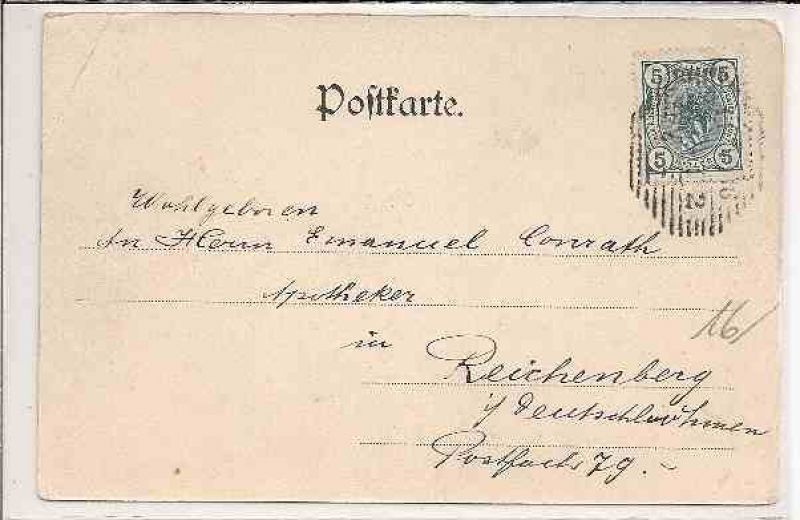 Postkarte.
5 5
5 5
Wohlgeboren
An Herrn Emanuel Conrath
Apotheker
in
Reichenberg
i/ Deutschböhmen
Postfach 79.-
16/